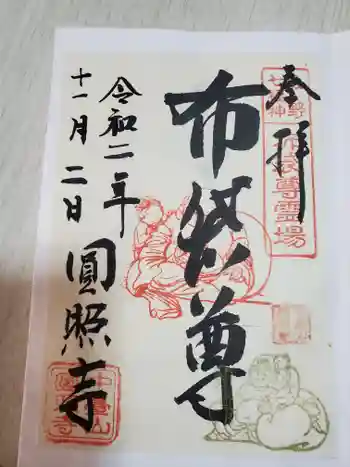 奉拝
布袋尊
令和二年
十一月二日
圓照寺
布袋尊霊場